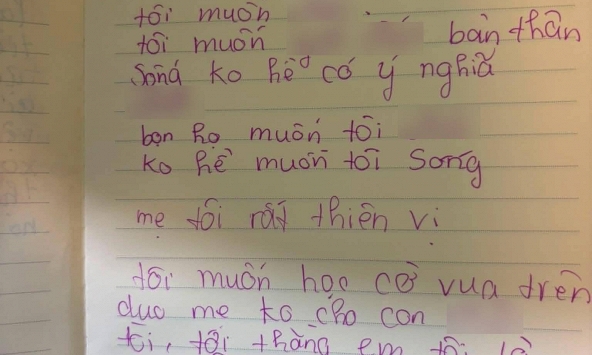 tôi muốn
tôi muốn bản thân
Sống ko hề có ý nghĩa
bọn họ muốn tôi
ko hề muốn tôi sống
mẹ tôi rất thiên vị
tôi muốn học cờ vua trên
duo mẹ ko cho con
tôi, tôi thằng em tôi